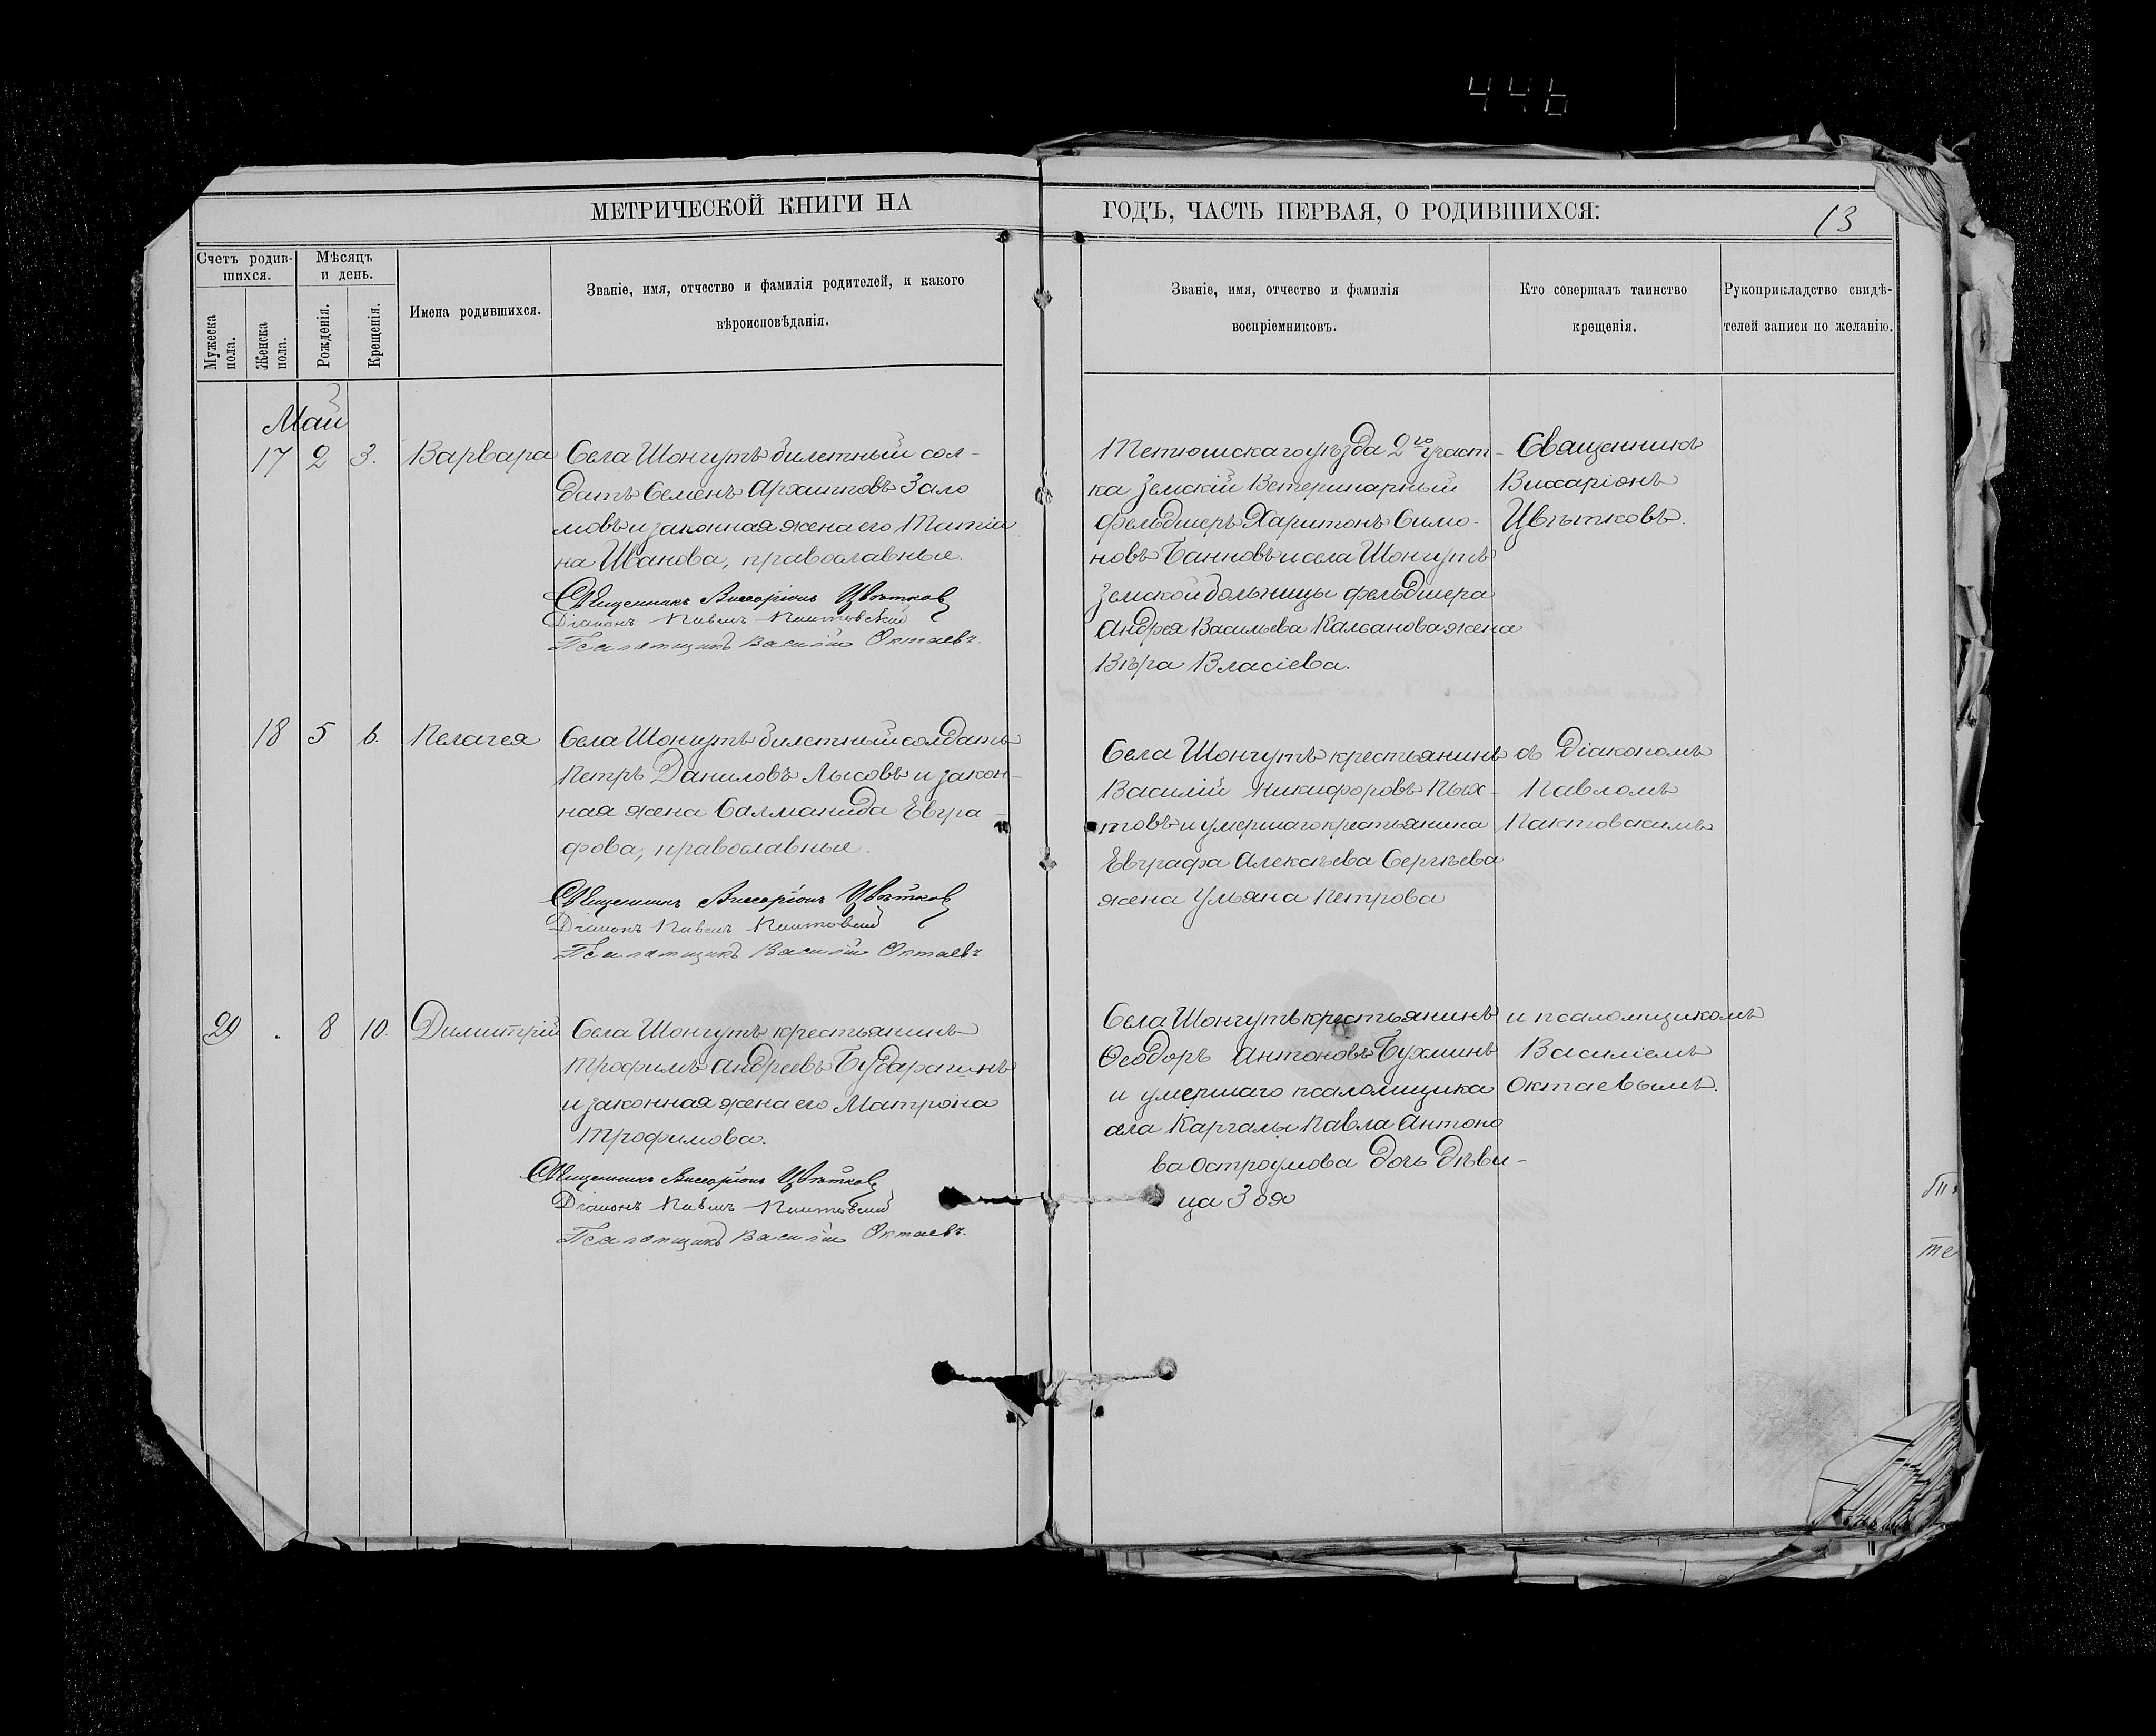 446
МЕТРИЧЕСКОЙ КНИГИ НА ГОДЪ, ЧАСТЬ ПЕРВАЯ, О РОДИВШИХСЯ:
13
Счетъ родив-
шихся.
Мужеска
пола.
Женска
пола.
Мѣсяцъ
и день.
Рожденія.
Крещенія.
Имена родившихся.
Званіе, имя, отчество и фамилія родителей, и какого
вѣроисповѣданія.
Званіе, имя, отчество и фамилія
воспріемниковъ.
Кто совершалъ таинство
крещенія.
Рукоприкладство свидѣ-
телей записи по желанію.
Май
17 2 3. Варвара
Села Шонгутъ билетный сол-
датъ Семенъ Архиповъ Зало
мовъ и законная жена его Татiа
на Иванова, православные.
Священникъ Виссаріонъ Цвѣтковъ
Діаконъ Павелъ Пактовскій
Псаломщикъ Василій Октаевъ.
Тетюшскаго уѣзда 2го участ-
ка Земскій Ветеринарный
фельдшеръ Харитонъ Симо-
новъ Банновъ и села Шонгутъ
Земской больницы фельдшера
Андрея Васильева Калсанова жена
Вѣра Власіева.
Священникъ
Виссаріонъ
Цвѣтковъ.
18 5 6. Пелагея
Села Шонгутъ билетный солдатъ
Петръ Даниловъ Лысовъ и закон-
ная жена Салманида Евгра-
фова, православные.
Священникъ Виссаріонъ Цвѣтковъ
Діаконъ Павелъ Пактовскій
Псаломщикъ Василій Октаевъ
Села Шонгутъ крестьянинъ
Василій Никифоровъ Пых-
товъ и умершаго крестьянина
Евграфа Алексѣева Сергѣева
жена Ульяна Петрова
съ Діакономъ
Павломъ
Пактовскимъ
20 . 8 10. Димитрій
Села Шонгутъ крестьянинъ
Трофимъ Андреевъ Бударагинъ
и законная жена его Матрона
Трофимова.
Священникъ Виссаріонъ Цвѣтковъ
Діаконъ Павелъ Пактовскій
Псаломщикъ Василій Октаевъ.
Села Шонгутъ крестьянинъ
Ѳеодоръ Антоновъ Бухминъ
и умершаго псаломщика
села Каргалы Павла Антоно
ва Остроумова дочь дѣви-
ца Зоя
и псаломщикомъ
Василіемъ
Октаевымъ.
те